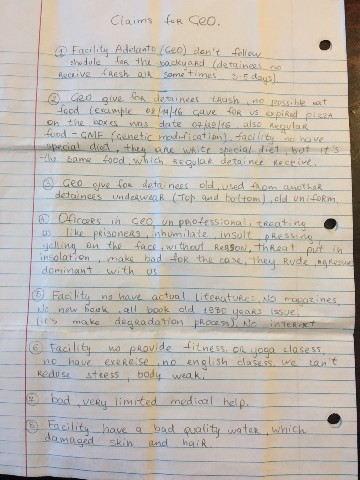 Claims for GEO.
① Facility Adelanto (GEO) don't follow
shedule for the backyard (detainees no
receive fresh air sometimes 3-5 days).
② GEO give for detainees trash, no possible eat
food (example 08/14/16 gave for us expired pizza
on the boxes was date 07/29/16, also regular
food - GMF (genetic modification), facility no have
special diet, they are write special diet, but it's
the same food, which regular detainee receive.
③ GEO give for detainees old, used from another
detainees underwear (top and bottom), old uniform.
④ Officers in GEO unprofessional, treating
us like prisoners, inhumilate, insult, pressing,
yelling on the face, without reason, threat put in
insolation, make bad for the case, they rude, agressive
dominant with us
⑤ Facility no have actual literatures, no magazines,
no new book, all book old 1970 years issue.
(it's make degradation process). No internet
⑥ Facility no provide fitness or yoga clasess,
no have exercise, no english clasess, we can't
reduse stress, body weak.
⑦ bad, very limited medical help.
⑧ Facility have a bad quality water, which
damaged skin and hair